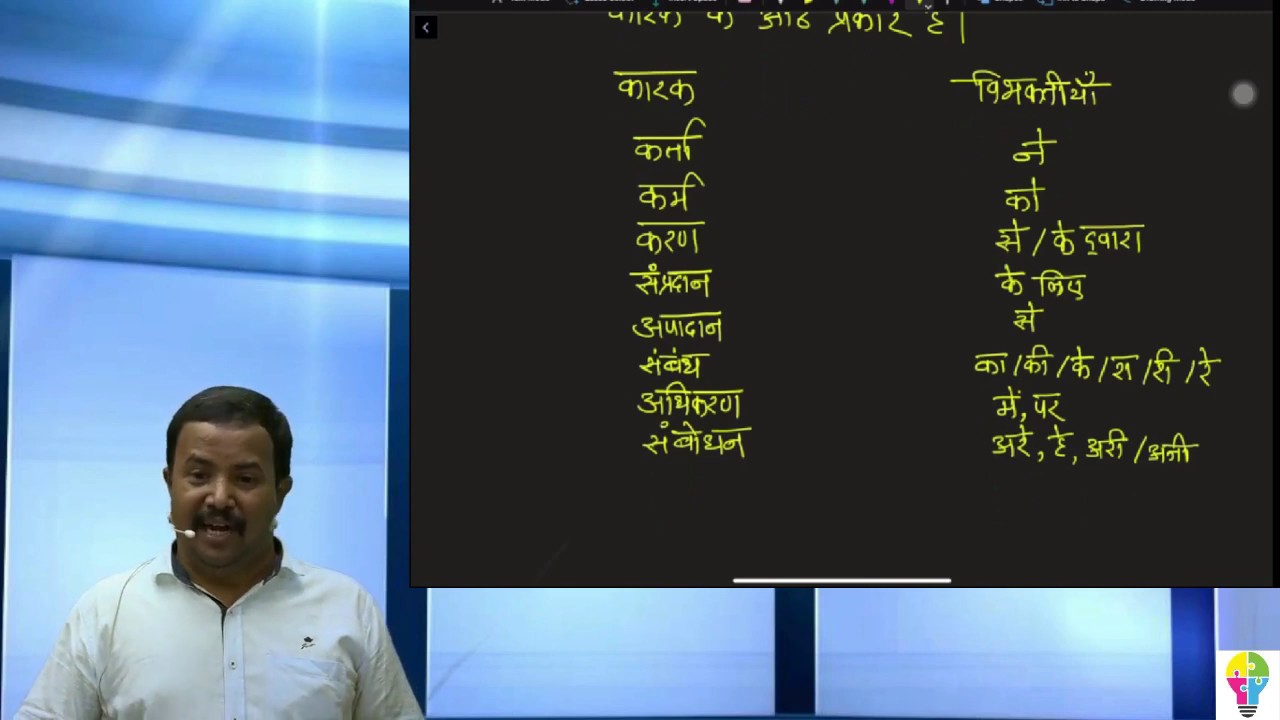 कारक के आठ प्रकार है।
कारक विभक्तीयाँ
कर्ता ने
कर्म को
करण से / के द्वारा
संप्रदान के लिए
अपादान से
संबंध का / की / के / रा / री / रे
अधिकरण में, पर
संबोधन अरे, हे, अरी / अजी